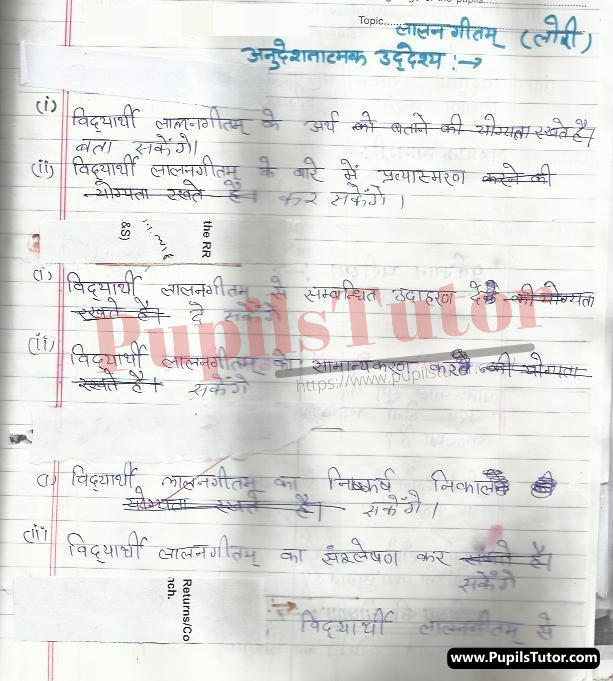 Topic
लालन गीतम् (लोरी)
अनुदेशनात्मक उद्देश्य :→
(i) विद्यार्थी लालनगीतम् के अर्थ को बताने की योग्यता रखते है।
बता सकेंगे।
(ii) विद्यार्थी लालनगीतम् के बारे में प्रत्यास्मरण करने की
योग्यता रखते है। कर सकेंगे।
the RR
&S)
(i) विद्यार्थी लालनगीतम् से सम्बन्धित उदाहरण देने की योग्यता
रखते है। दे सकेंगे
PupilsTutor
(ii) विद्यार्थी लालनगीतम् को सामान्यीकरण की योग्यता
https://www.pupilstutor
रखते है। सकेंगे
(i) विद्यार्थी लालनगीतम् का निष्कर्ष निकाल
योग्यता रखते है। सकेंगे।
(ii) विद्यार्थी लालनगीतम् का संश्लेषण कर सकते है।
सकेंगे
Returns/Co
ach.
विद्यार्थी लालनगीतम् से
www.PupilsTutor.com